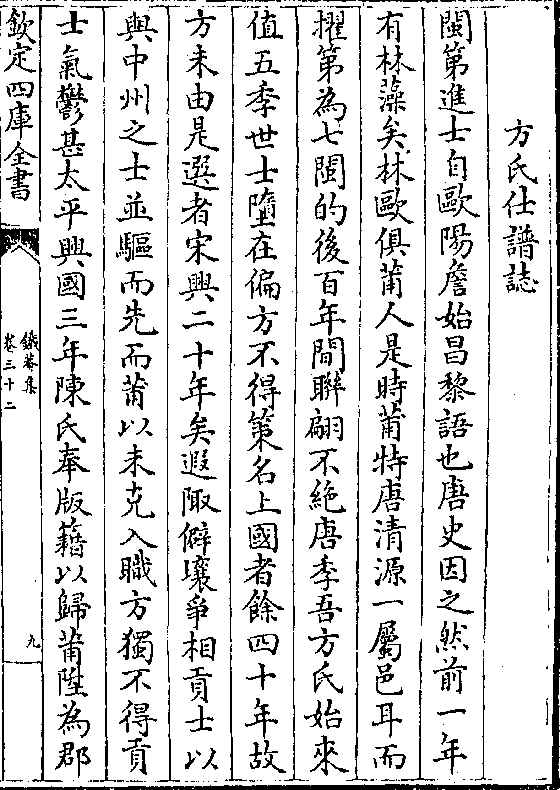 方氏仕譜誌
閩第進士自歐陽詹始昌黎語也唐史因之然前一年
有林藻矣林歐俱莆人是時莆特唐清源一屬邑耳而
擢第為七閩的後百年間聯翩不絶唐季吾方氏始來
值五季世士墮在偏方不得策名上國者餘四十年故
方未由是選者宋興二十年矣遐陬僻壤爭相貢士以
與中州之士並驅而先而莆以未克入職方獨不得貢
士氣鬱甚太平興國三年陳氏奉版籍以歸莆陞為郡
欽定四庫全書
鐵菴集
卷三十二
九